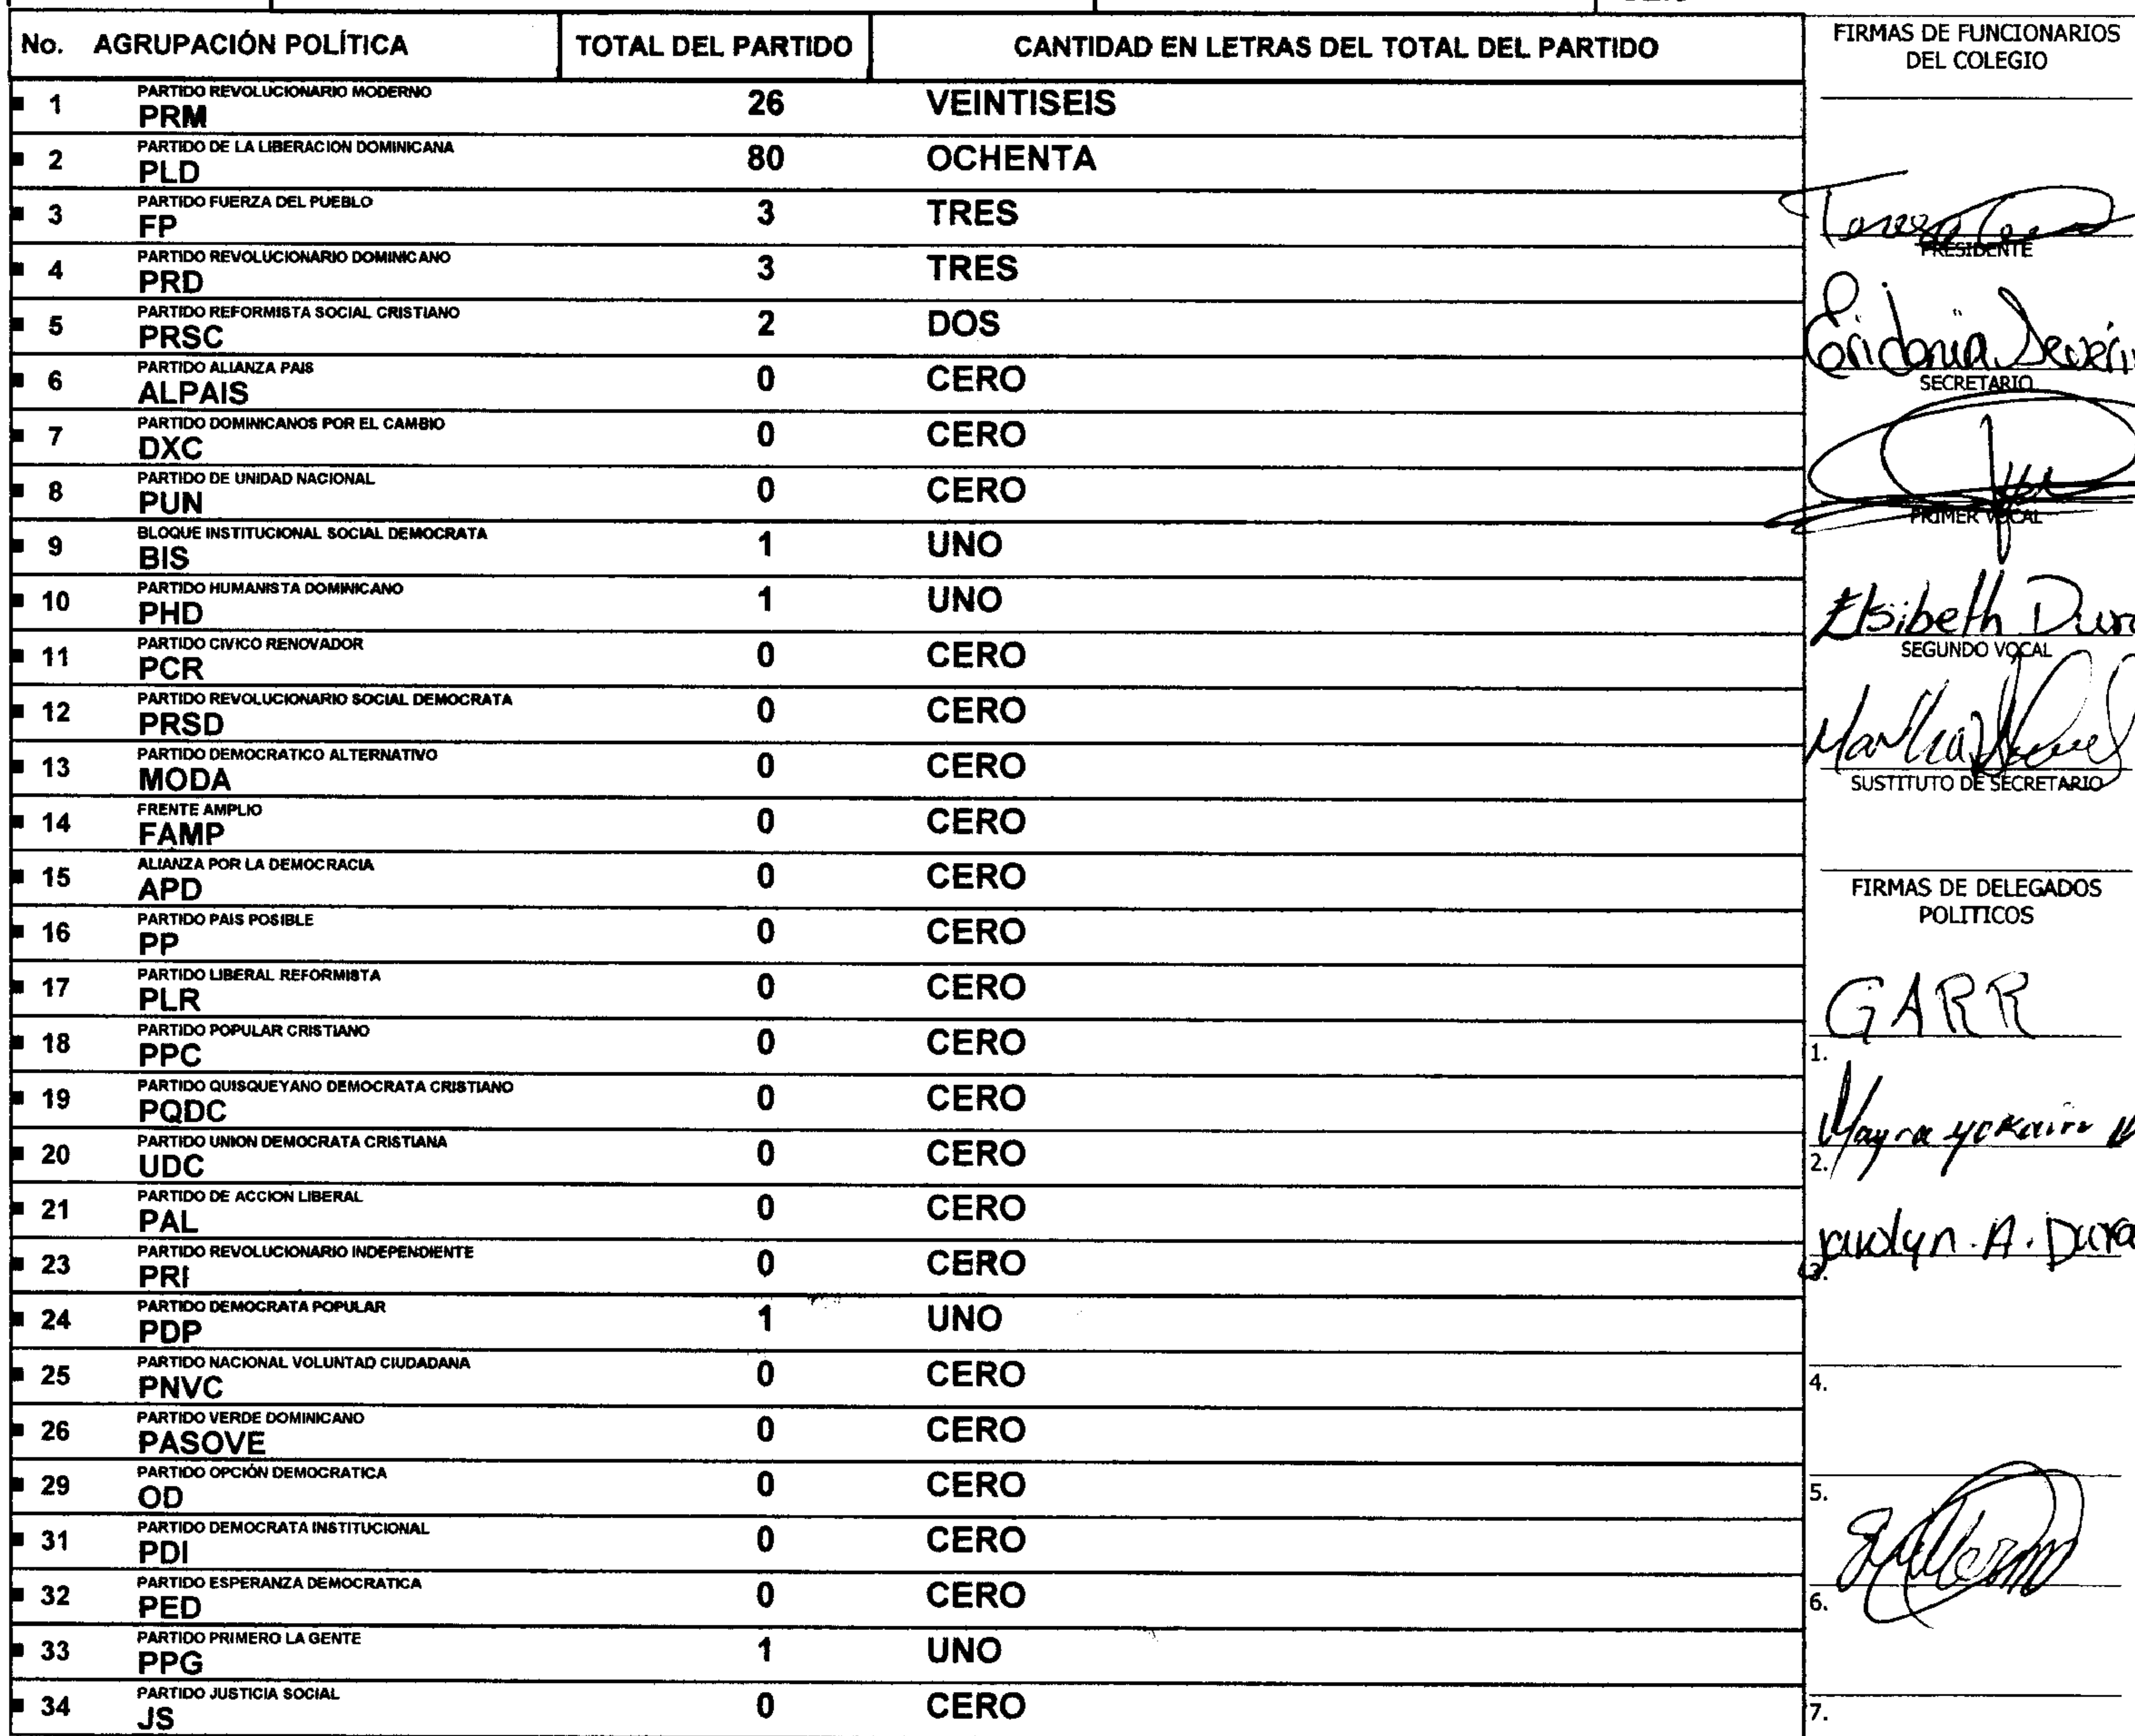 No. AGRUPACIÓN POLÍTICA TOTAL DEL PARTIDO CANTIDAD EN LETRAS DEL TOTAL DEL PARTIDO
1 PARTIDO REVOLUCIONARIO MODERNO
PRM 26 VEINTISEIS
2 PARTIDO DE LA LIBERACION DOMINICANA
PLD 80 OCHENTA
3 PARTIDO FUERZA DEL PUEBLO
FP 3 TRES
4 PARTIDO REVOLUCIONARIO DOMINICANO
PRD 3 TRES
5 PARTIDO REFORMISTA SOCIAL CRISTIANO
PRSC 2 DOS
6 PARTIDO ALIANZA PAIS
ALPAIS 0 CERO
7 PARTIDO DOMINICANOS POR EL CAMBIO
DXC 0 CERO
8 PARTIDO DE UNIDAD NACIONAL
PUN 0 CERO
9 BLOQUE INSTITUCIONAL SOCIAL DEMOCRATA
BIS 1 UNO
10 PARTIDO HUMANISTA DOMINICANO
PHD 1 UNO
11 PARTIDO CIVICO RENOVADOR
PCR 0 CERO
12 PARTIDO REVOLUCIONARIO SOCIAL DEMOCRATA
PRSD 0 CERO
13 PARTIDO DEMOCRATICO ALTERNATIVO
MODA 0 CERO
14 FRENTE AMPLIO
FAMP 0 CERO
15 ALIANZA POR LA DEMOCRACIA
APD 0 CERO
16 PARTIDO PAIS POSIBLE
PP 0 CERO
17 PARTIDO LIBERAL REFORMISTA
PLR 0 CERO
18 PARTIDO POPULAR CRISTIANO
PPC 0 CERO
19 PARTIDO QUISQUEYANO DEMOCRATA CRISTIANO
PQDC 0 CERO
20 PARTIDO UNION DEMOCRATA CRISTIANA
UDC 0 CERO
21 PARTIDO DE ACCION LIBERAL
PAL 0 CERO
23 PARTIDO REVOLUCIONARIO INDEPENDIENTE
PRI 0 CERO
24 PARTIDO DEMOCRATA POPULAR
PDP 1 UNO
25 PARTIDO NACIONAL VOLUNTAD CIUDADANA
PNVC 0 CERO
26 PARTIDO VERDE DOMINICANO
PASOVE 0 CERO
29 PARTIDO OPCIÓN DEMOCRATICA
OD 0 CERO
31 PARTIDO DEMOCRATA INSTITUCIONAL
PDI 0 CERO
32 PARTIDO ESPERANZA DEMOCRATICA
PED 0 CERO
33 PARTIDO PRIMERO LA GENTE
PPG 1 UNO
34 PARTIDO JUSTICIA SOCIAL
JS 0 CERO
FIRMAS DE FUNCIONARIOS
DEL COLEGIO
PRESIDENTE
SECRETARIO
PRIMER VOCAL
Elsibeth
SEGUNDO VOCAL
Martha
SUSTITUTO DE SECRETARIO
FIRMAS DE DELEGADOS
POLITICOS
GARR
1.
Mayra
2.
A.
3.
4.
5.
6.
7.